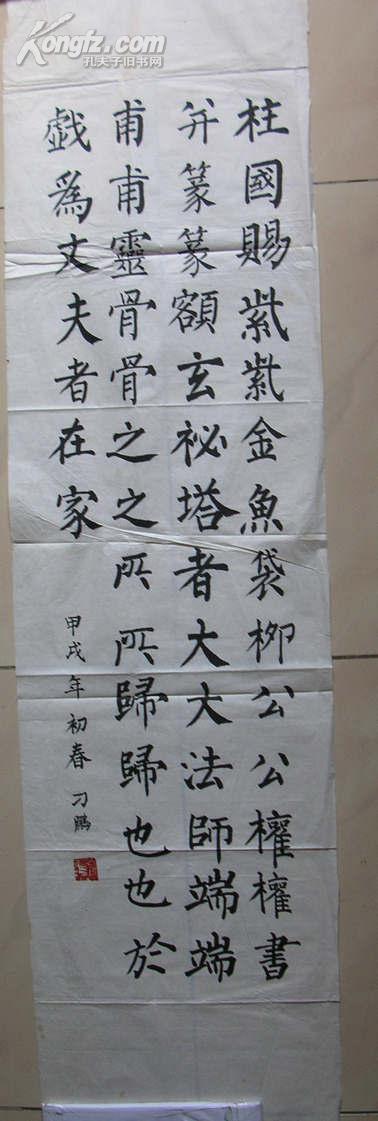 Kongfz.com
孔夫子旧书网
柱國賜紫紫金魚袋柳公公權權書
并篆篆額玄祕塔者大大法師端端
甫甫靈骨骨之之所所歸歸也也於
戱為丈夫者在家
甲戌年初春 刁鵬